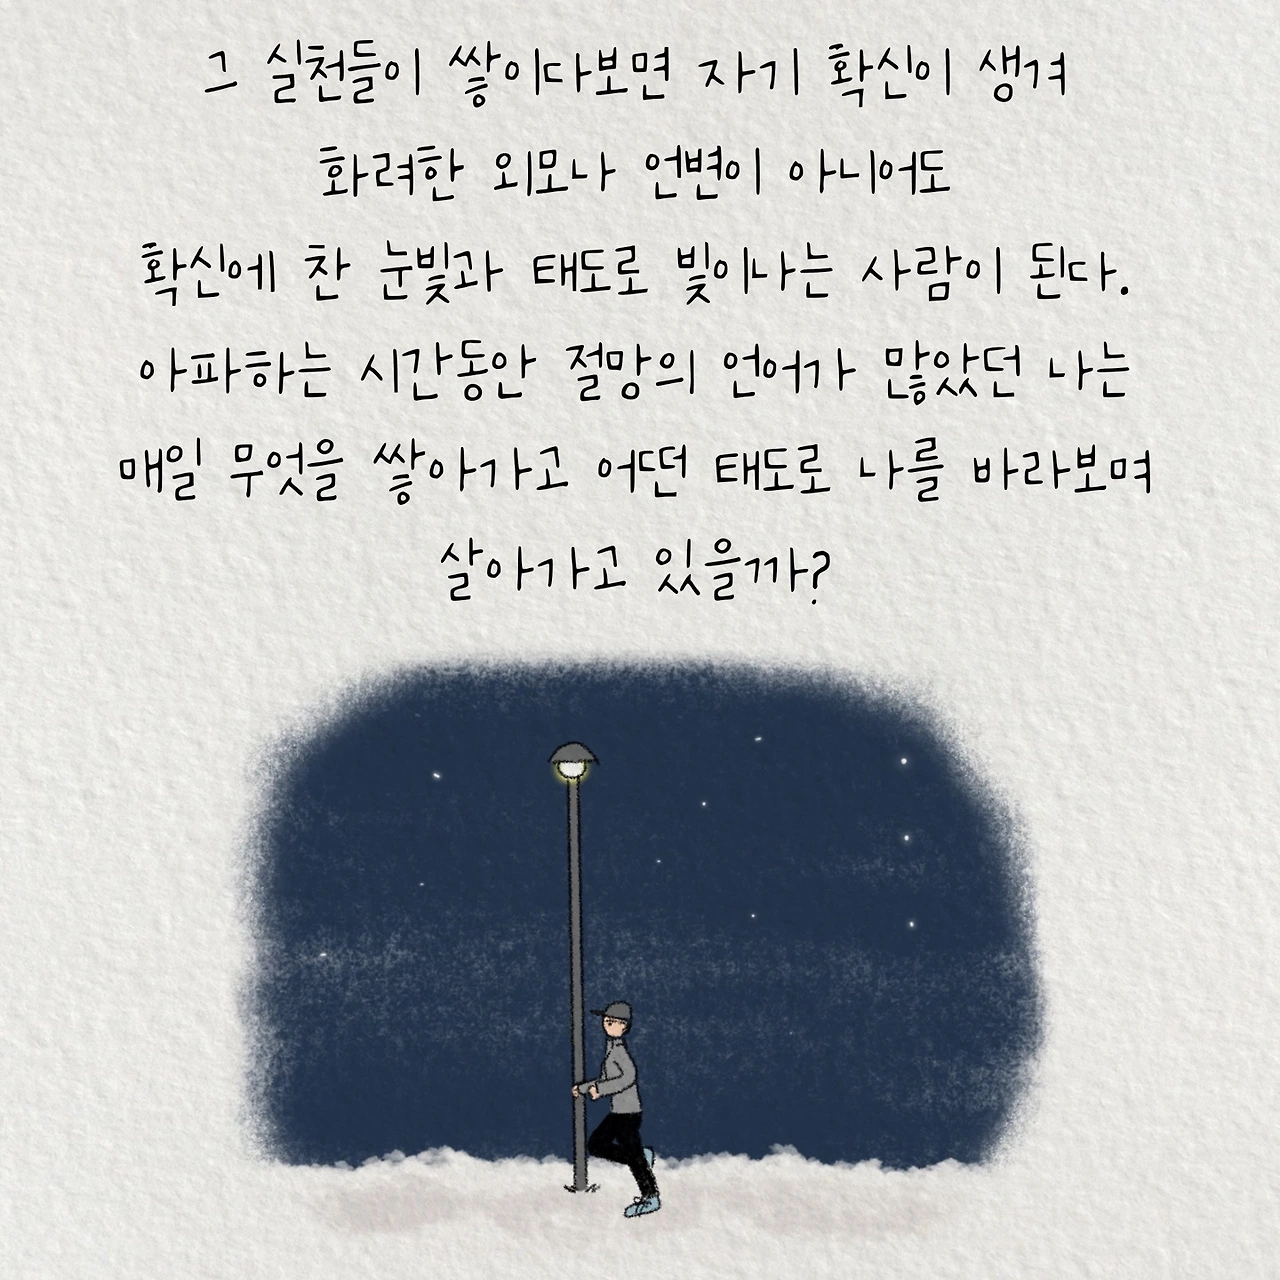 그 실천들이 쌓이다보면 자기 확신이 생겨
화려한 외모나 언변이 아니어도
확신에 찬 눈빛과 태도로 빛이나는 사람이 된다.
아파하는 시간동안 절망의 언어가 많았던 나는
매일 무엇을 쌓아가고 어떤 태도로 나를 바라보며
살아가고 있을까?